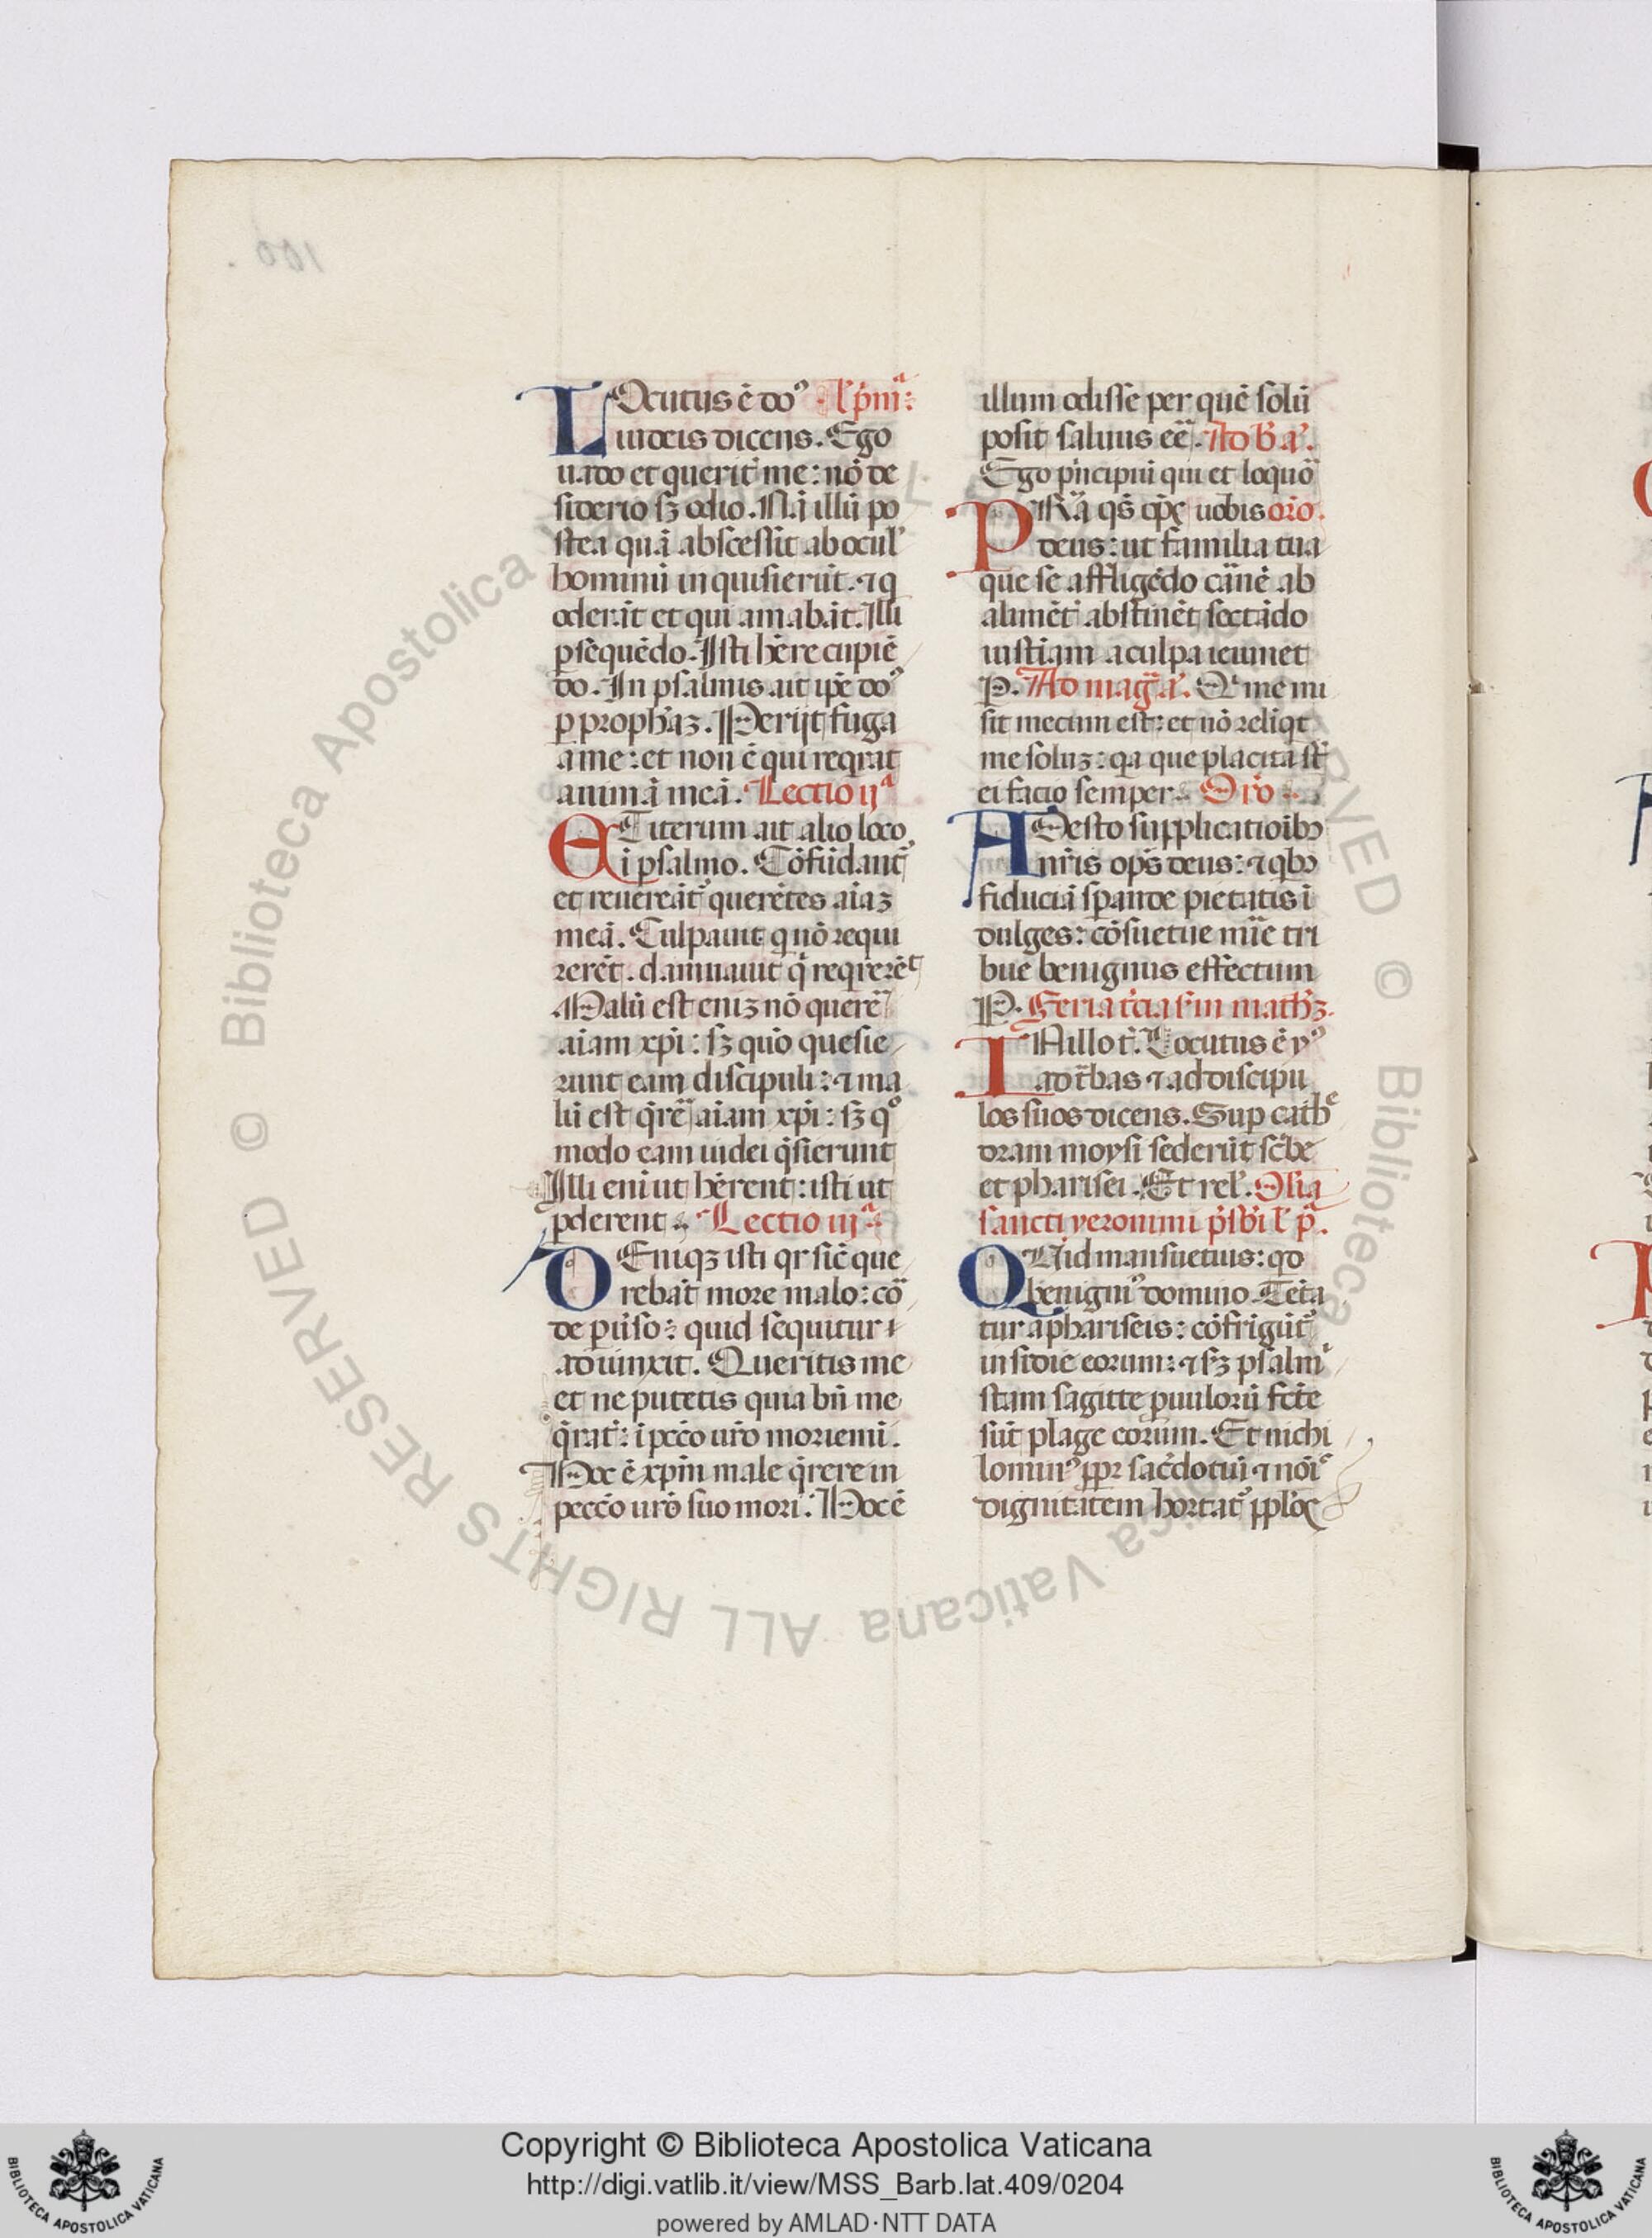 LOcutus ē dn̄s l' pm̄ᵃ:
iudeis dicens. Ego
uado et querit' me: nō de
siderio sꝫ odio. Nā illū po
stea quā abscessit ab ocul'
hominū inquisierūt. ⁊ q
oderāt et qui amabāt. Illi
ꝑsequēdo. Isti hēre cupiē
do. In psalmis ait ip̄e do⁹
ꝑ proph̄aꝫ. Perijt fuga
a me: et non ē qui reqrat
animā meā. Lectio ijᵃ
ET iterum ait alio loco
ī psalmo. Cōfūdant'
et reuereāt' querētes aīaꝫ
meā. Culpauit q nō requi
rerēt. damnauit q̇ reqrerēt
Malū est eniꝫ nō querē
aīam xp̄i: sꝫ quō quesie
runt eam discipuli: ⁊ ma
lū est q̇rē aīam xp̄i: sꝫ qº
modo eam iudei q̇sierunt
Illi eni ut hērent: isti ut
ꝑderent. Lectio iijᵃ
DEniqꝫ isti qr sic̄ que
rebāt more malo: cō
de ꝑuso: quid sequitur
adiunxit. Queritis me
et ne putetis quia bn̄ me
q̇rat': ī pcc̄o uro moriemi.
Hoc ē xp̄m male q̇rere in
pecc̄o uro suo mori. Hoc ē
illum odisse per quē solū
posit saluus ēē. Ad b' a'.
Ego p'ncipiū qui et loquō
PRā qs̄ op̄s uobis oro.
deus: ut familia tua
que se affligēdo carnē ab
alimēt' abstinēt sectādo
iustiam a culpa ieiunet
P. Ad mag̅ a'. Q' me mi
sit mecum est: et nō reliqt
me soluꝫ: qa que placita st̄
ei facio semper. Oro
ADesto supplicatioibꝰ
nr̄is op̄s deus: ⁊ qbꝰ
fiduciā sperande pietatis ī
dulges: cōsuetue mīe tri
bue benignus effectum
P. Feria t'cia s'm math'ꝫ.
INillo t'. Locutus ē y⁹
ad t'bas ⁊ ad discipu
los suos dicens. Sup cathe
dram moysi sederūt sc'be
et pharisei. Et rel'. Olīa
sancti yeronimi p'sbi l' p'.
QUid mansuetius: qd
benigni⁹ domino. Tēta
tur a phariseis: cōfrigūt'
insidie eorum: ⁊ sꝫ psalmi
stam sagitte ꝑuulorū fcē
sūt plage eorum. Et nichi
lomin⁹ ꝓpr sac'dotiū ⁊ nōīe
dignitatem hortat' ꝓplos
Copyright © Biblioteca Apostolica Vaticana
http://digi.vatlib.it/view/MSS_Barb.lat.409/0204
powered by AMLAD·NTT DATA
BIBLIOTECA APOSTOLICA VATICANA
BIBLIOTECA APOSTOLICA VATICANA
© Biblioteca Apostolica Vaticana ALL RIGHTS RESERVED